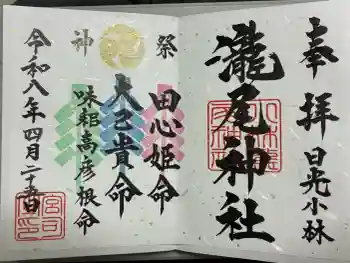 奉拝
日光小林
瀧尾神社
祭神
田心姫命
大己貴命
味耜高彦根命
令和八年四月二十五日